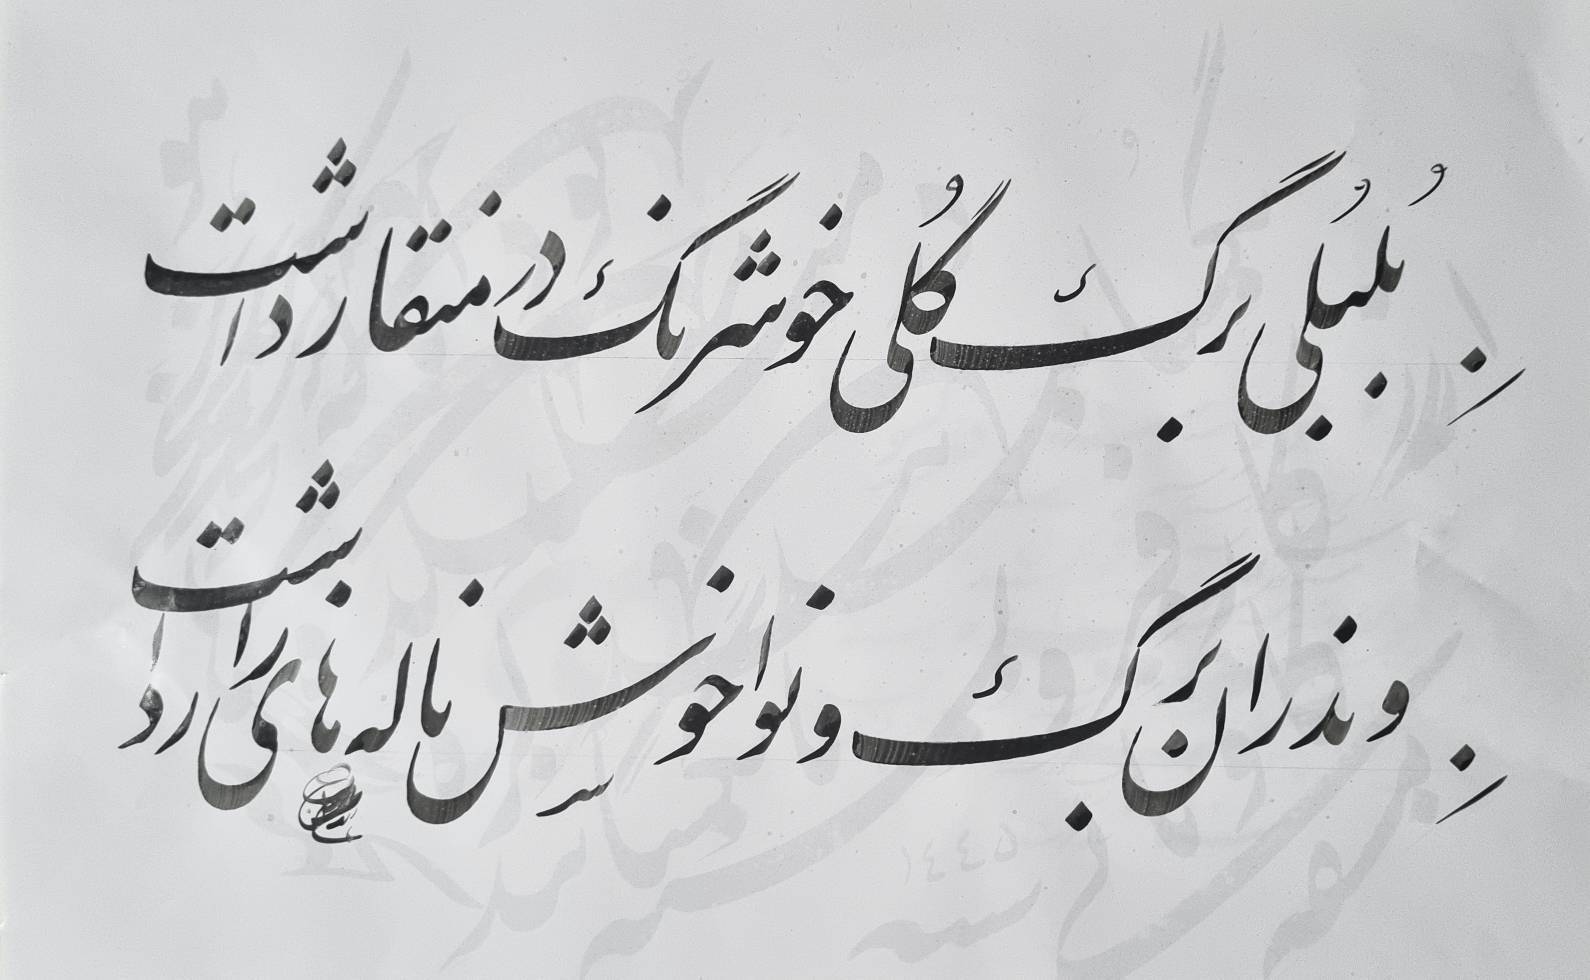 بُلبُلی برگ گُلی خوشرنگ در منقار داشت
وندران برگ و نوا خوش ناله های زار داشت
١٤٤٥